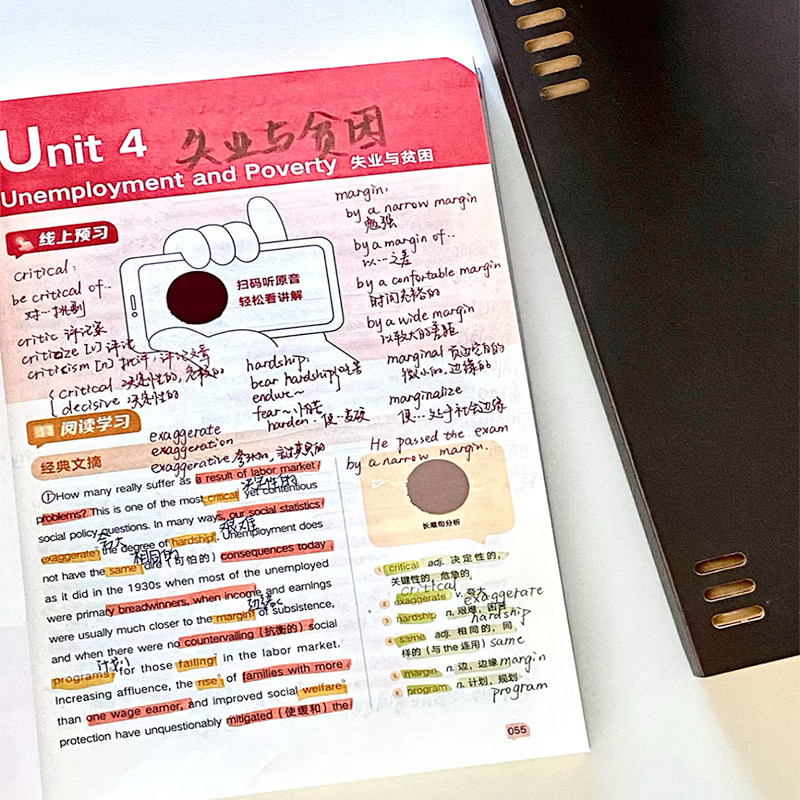 Unit 4 失业与贫困
Unemployment and Poverty 失业与贫困
线上预习
critical:
be critical of..
对…挑剔
critic 评论家
criticize [v] 评论
criticism [n] 批评,评论文章
critical 决定性的,危险的
decisive 决定性的
扫码听原音
轻松看讲解
hardship:
bear hardship
endure~
fear~
harden
margin:
by a narrow margin
勉强
by a margin of..
以…之差
by a confortable margin
时间充裕的
by a wide margin
以较大的差距
marginal 页边空白的
微小的,边缘的
marginalize
使…处于社会边缘
He passed the exam
by a narrow margin.
阅读学习
exaggerate
exaggeration
exaggerative 夸张的,
经典文摘
①How many really suffer as a result of labor market
决定性的
problems? This is one of the most critical yet contentious
social policy questions. In many ways, our social statistics
夸大 艰难
exaggerate the degree of hardship. Unemployment does
相同的
not have the same dire (可怕的) consequences today
as it did in the 1930s when most of the unemployed
were primary breadwinners, when income and earnings
边缘
were usually much closer to the margin of subsistence,
and when there were no countervailing (抗衡的) social
计划
programs for those failing in the labor market.
Increasing affluence, the rise of families with more
than one wage earner, and improved social welfare
protection have unquestionably mitigated (使缓和) the
长难句分析
1 critical adj. 决定性的,
关键性的,危急的。
critical
2 exaggerate v. 夸大
exaggerate
3 hardship n. 艰难,困苦
hardship
4 same adj. 相同的,同
样的(与 the 连用) same
5 margin n. 边,边缘 margin
6 program n. 计划,规划
program
055